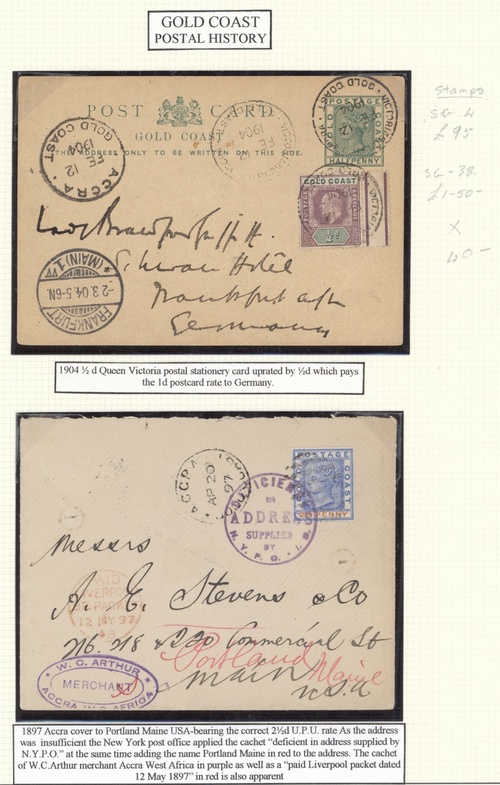 GOLD COAST
POSTAL HISTORY
Stamps
SG 4
£95
SG-38
£1-50-
X
40-
POST CARD
GOLD COAST
THE ADDRESS ONLY TO BE WRITTEN ON THIS SIDE.
ACCRA
FE 12
1904
GOLD COAST
POSTAGE
GOLD COAST
HALFPENNY
GOLD COAST
POSTAGE
½d
Hotel
Frankfurt a/m
Germany
FRANKFURT
*(MAIN)1
-2.3.04.5-6N.
1904 ½ d Queen Victoria postal stationery card uprated by ½d which pays
the 1d postcard rate to Germany.
ACCRA
AP 20
97
POSTAGE
GOLD COAST
PENNY
DEFICIENCY
IN
ADDRESS
SUPPLIED
BY
N. Y. P. O.
Messrs
A. E. Stevens & Co
216. 218 & 220 Commercial St
Portland Maine
Main
U.S.A
PAID
LIVERPOOL
BR PACKET
12 MY 97
W. C. ARTHUR
MERCHANT
ACCRA W.C. AFRICA
1897 Accra cover to Portland Maine USA-bearing the correct 2½d U.P.U. rate As the address
was insufficient the New York post office applied the cachet "deficient in address supplied by
N.Y.P.O." at the same time adding the name Portland Maine in red to the address. The cachet
of W.C.Arthur merchant Accra West Africa in purple as well as a "paid Liverpool packet dated
12 May 1897" in red is also apparent